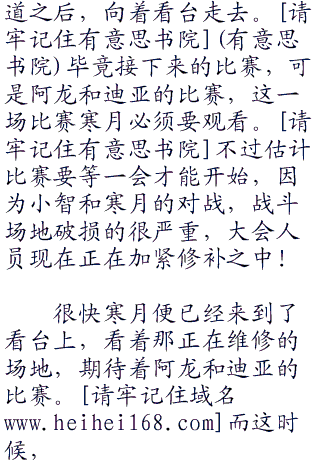 道之后，向着看台走去。[请
牢记住有意思书院](有意思
书院)毕竟接下来的比赛，可
是阿龙和迪亚的比赛，这一
场比赛寒月必须要观看。[请
牢记住有意思书院]不过估计
比赛要等一会才能开始，因
为小智和寒月的对战，战斗
场地破损的很严重，大会人
员现在正在加紧修补之中！
很快寒月便已经来到了
看台上，看着那正在维修的
场地，期待着阿龙和迪亚的
比赛。[请牢记住域名
www.heihei168.com]而这时
候，